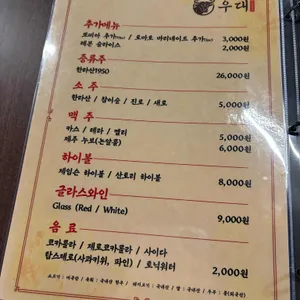 우대
추가메뉴
또띠아 추가(1ea) / 토마토 마리네이드 추가(1ea) 3,000원
레몬 슬라이스 2,000원
증류주
한라산1950 26,000원
소 주
한라산 / 참이슬 / 진로 / 새로 5,000원
맥 주
카스 / 테라 / 켈리 5,000원
제주 누보(논알콜) 6,000원
하이볼
제임슨 하이볼 / 산토리 하이볼 8,000원
글라스와인
Glass (Red / White) 9,000원
음 료
코카콜라 / 제로코카콜라 / 사이다
탐스제로(사과키위, 파인) / 토닉워터 2,000원